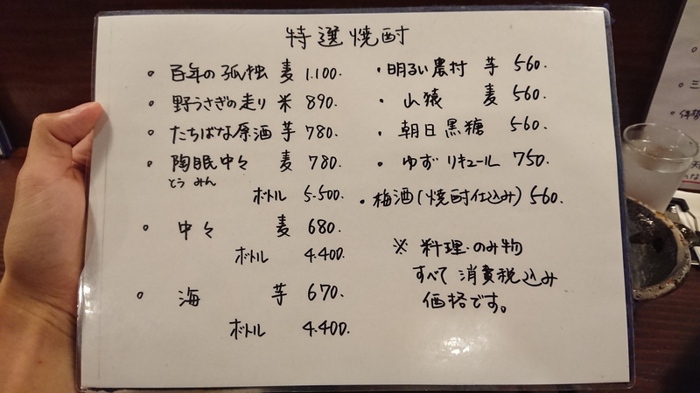 特選焼酎
・百年の孤独 麦 1.100.
・野うさぎの走り 米 890.
・たちばな原酒 芋 780.
・陶眠中々 麦 780.
とうみん
ボトル 5.500.
・中々 麦 680.
ボトル 4.400.
・海 芋 670.
ボトル 4.400.
・明るい農村 芋 560.
・山猿 麦 560.
・朝日 黒糖 560.
・ゆずリキュール 750.
・梅酒(焼酎仕込み) 560.
※ 料理・のみ物
すべて消費税込み
価格です。